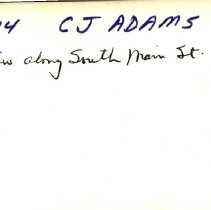 4 CJ ADAMS
w along South Main St.